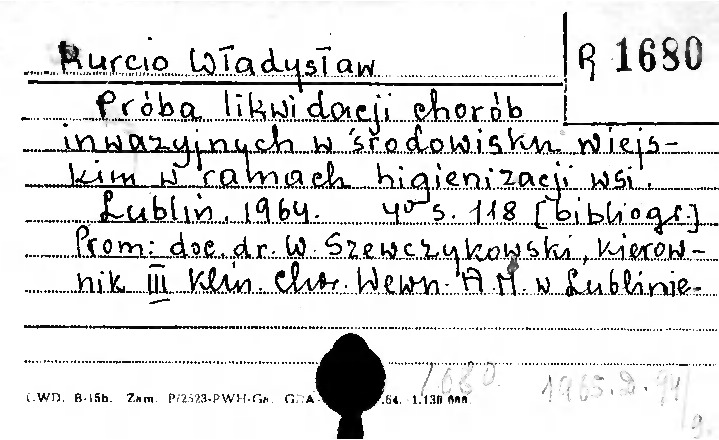 Kurcio Władysław
R 1680
Próba likwidacji chorób
inwazyjnych w środowisku wiejs-
kim w ramach higienizacji wsi.
Lublin, 1964. 4° s. 118 [bibliogr.]
Prom: doc. dr. W. Szewczykowski, kierow-
nik III Klin. Chor. Wewn. A.M. w Lublinie.
1680 1965.D.94/9.
C.WD. B-15b. Zam. P/2523-PWH-Ga. GDA- .64. 1.130 000.